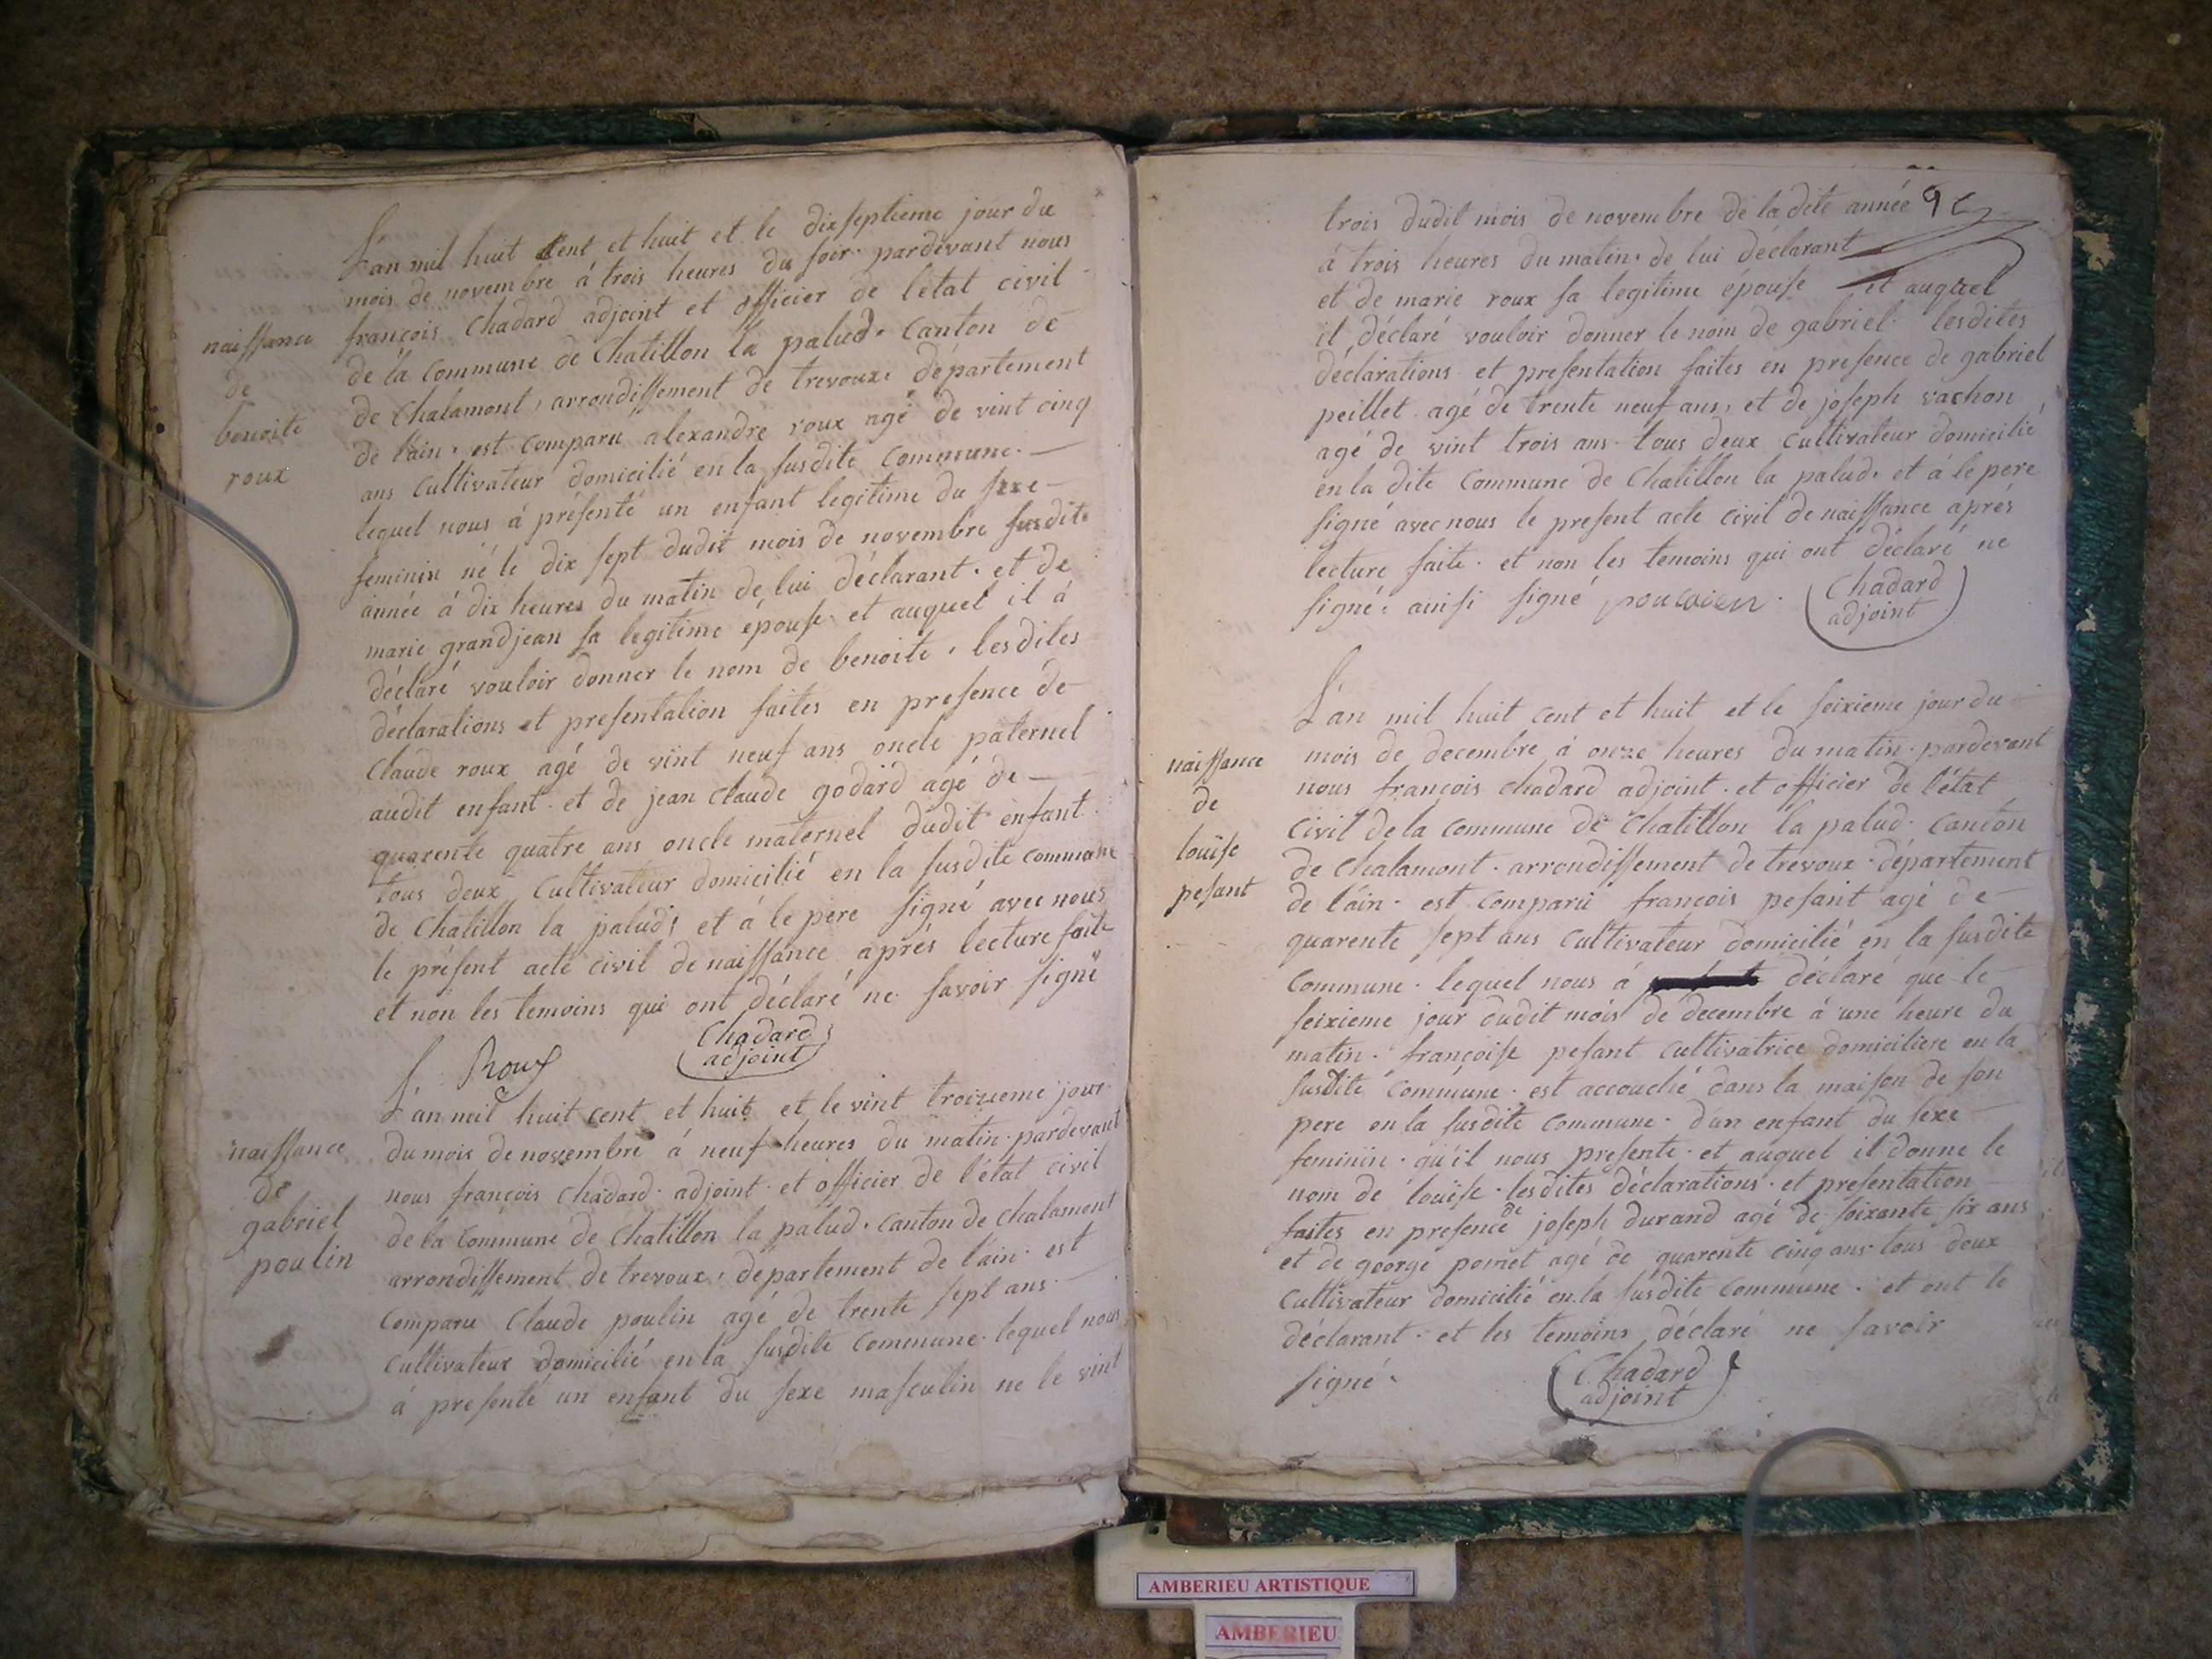 naissance
de
benoite
roux
L'an mil huit Cent et huit et le dixseptieme jour du
mois de novembre á trois heures du soir. pardevant nous
françois Chadard adjoint et officier de l'état civil
de la Commune de Chatillon la palud. Canton de
de Chalamont, arrondissement de trevoux. département
de l'ain. est comparu alexandre roux agé de vint cinq
ans Cultivateur domicilié en la susdite Commune.
lequel nous á présenté un enfant legitime du sexe
feminin né le dix sept dudit mois de novembre susdite
année á dix heures du matin de lui déclarant. et de
marie grandjean sa legitime épouse. et auquel il á
déclaré vouloir donner le nom de benoite, lesdites
déclarations et presentation faites en presence de
Claude roux agé de vint neuf ans oncle paternel
audit enfant. et de jean Claude godard agé de
quarente quatre ans oncle maternel dudit enfant.
tous deux Cultivateur domicilié en la susdite commune
de Chatillon la palud, et á le pere signé avec nous
le présent acte civil de naissance aprés lecture faite
et non les temoins qui ont déclaré ne savoir signé
Roux
Chadard
adjoint
naissance
de
gabriel
poulin
L'an mil huit cent et huit et le vint troizieme jour
du mois de novembre á neuf heures du matin. pardevant
nous françois Chadard. adjoint. et officier de l'état civil
de la Commune de Chatillon la palud. Canton de chalamont
arrondissement de trevoux, departement de l'ain. est
Comparu Claude poulin agé de trente sept ans.
Cultivateur domicilié en la susdite Commune. lequel nous
á presenté un enfant du sexe masculin ne le vint
trois dudit mois de novembre de la dite année
á trois heures du matin. de lui déclarant
et de marie roux sa legitime épouse et auquel
il déclaré vouloir donner le nom de gabriel. lesdites
déclarations et presentation faites en presence de gabriel
peillet agé de trente neuf ans, et de joseph vachon
agé de vint trois ans. tous deux Cultivateur domicilié
en la dite Commune de Chatillon la palud. et á le pere
signé avec nous le present acte civil de naissance aprés
lecture faite. et non les temoins qui ont déclaré ne
signé: ainsi signé
Chadard
adjoint
naissance
de
louïse
pesant
L'an mil huit cent et huit et le seixieme jour du
mois de decembre á onze heures du matin. pardevant
nous françois chadard adjoint. et officier de l'état
civil de la Commune de Chatillon la palud. Canton
de Chalamont. arrondissement de trevoux. département
de l'ain. est Comparu françois pesant agé de
quarente sept ans Cultivateur domicilié en la susdite
Commune. lequel nous á déclaré que le
seixieme jour dudit mois de decembre á une heure du
matin. françoise pesant Cultivatrice domiciliere en la
susdite Commune. est accouché dans la maison de son
pere en la susdite Commune. d'un enfant du sexe
feminin. qu'il nous presente. et auquel il donne le
nom de louïse. lesdites déclarations. et presentation
faites en presence de joseph durand agé de soixante six ans
et de george pomet agé de quarente cinq ans. tous deux
Cultivateur domicilié en la susdite Commune. et ont le
déclarant. et les temoins déclaré ne savoir
signé.
Chadard
adjoint
AMBERIEU ARTISTIQUE
AMBERIEU